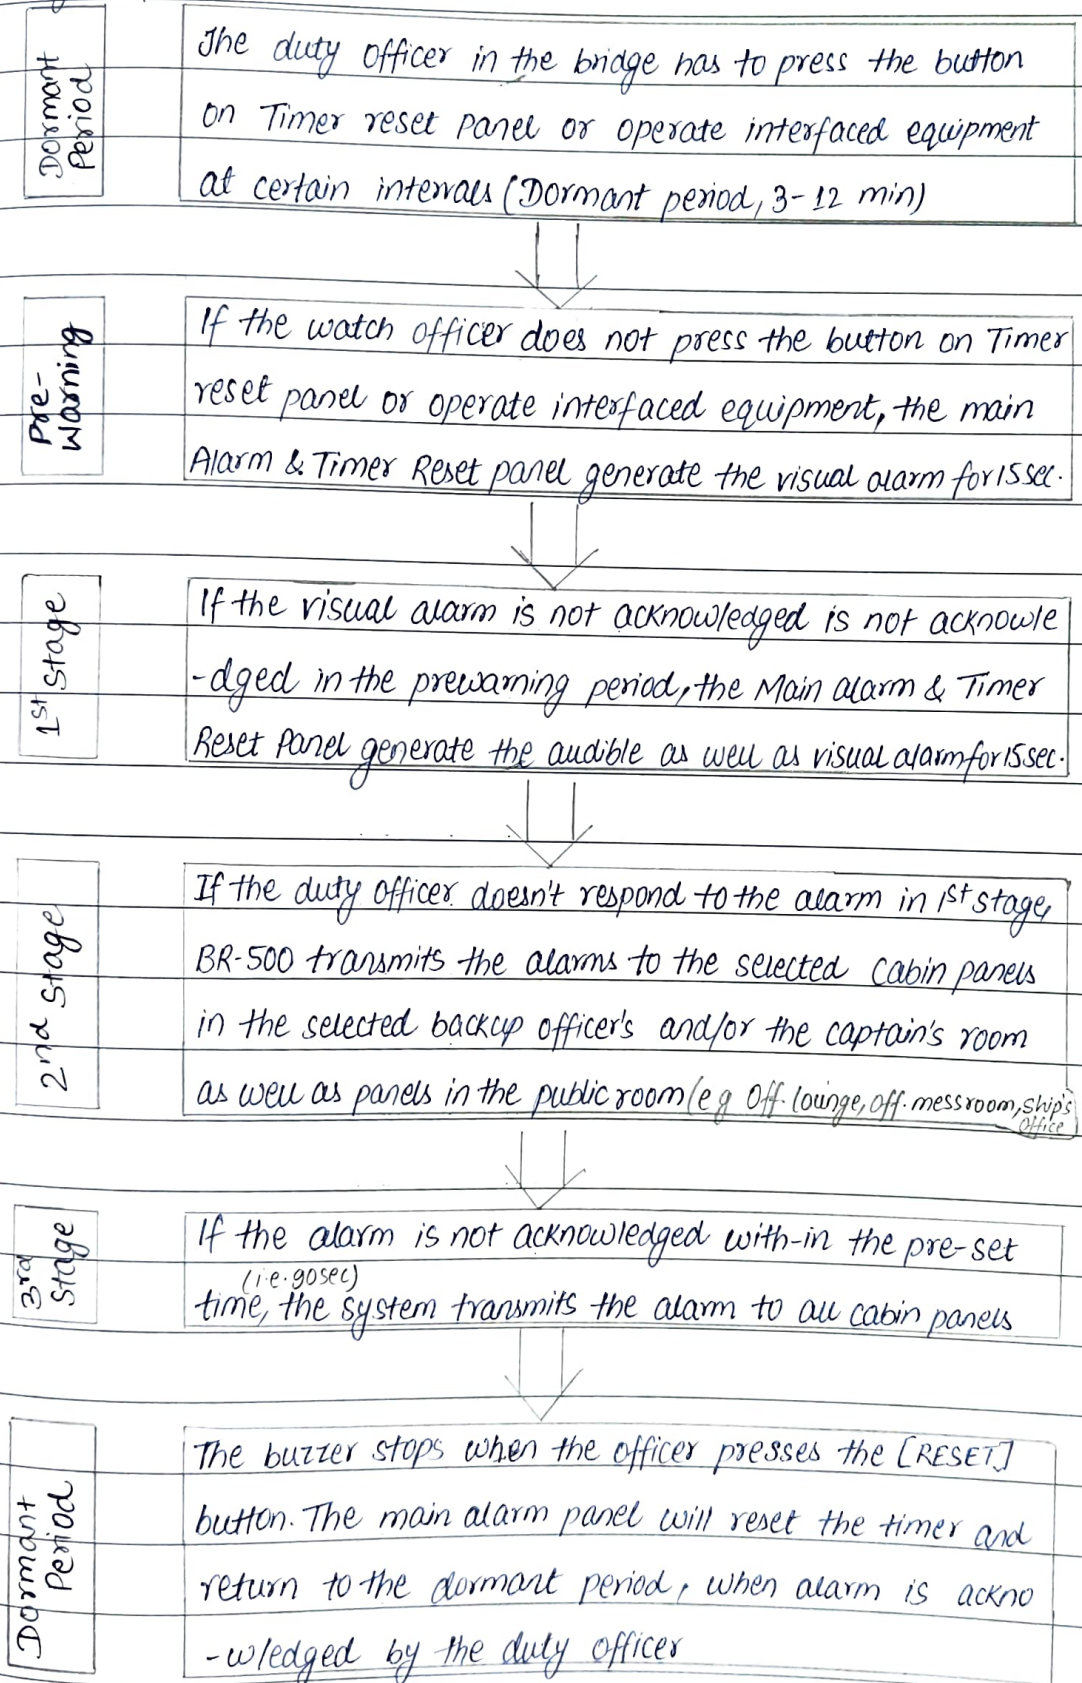 Dormant
Period
The duty officer in the bridge has to press the button
on Timer reset panel or operate interfaced equipment
at certain intervals (Dormant period, 3-12 min)
Pre-
Warning
If the watch officer does not press the button on Timer
reset panel or operate interfaced equipment, the main
Alarm & Timer Reset panel generate the visual alarm for 15 sec.
1st Stage
If the visual alarm is not acknowledged is not acknowle
-dged in the prewarning period, the Main alarm & Timer
Reset Panel generate the audible as well as visual alarm for 15 sec.
2nd Stage
If the duty officer doesn't respond to the alarm in 1st stage,
BR-500 transmits the alarms to the selected cabin panels
in the selected backup officer's and/or the captain's room
as well as panels in the public room (eg Off. lounge, off. messroom, ship's
office)
3rd
Stage
If the alarm is not acknowledged with-in the pre-set
(i.e. 90sec)
time, the system transmits the alarm to all cabin panels
Dormant
Period
The buzzer stops when the officer presses the [RESET]
button. The main alarm panel will reset the timer and
return to the dormant period, when alarm is ackno
-wledged by the duty officer